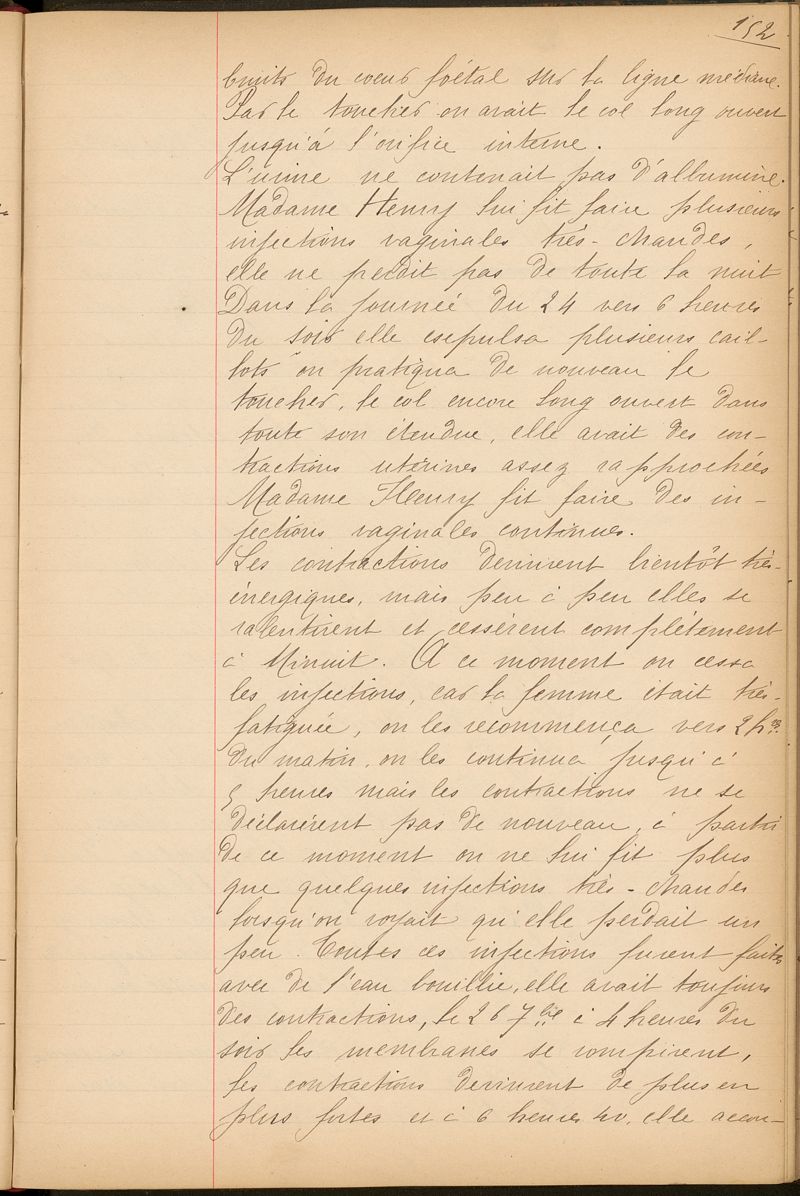 152
bruits du coeur foetal sur la ligne médiane.
Par le toucher on avait le col long ouvert
jusqu'à l'orifice interne.
L'urine ne contenait pas d'albumine.
Madame Henry lui fit faire plusieurs
injections vaginales très-chaudes,
elle ne perdit pas de toute la nuit
Dans la journée du 24 vers 6 heures
du soir elle expulsa plusieurs cail-
lots on pratiqua de nouveau le
toucher, le col encore long ouvert dans
toute son étendue, elle avait des con-
tractions utérines assez rapprochées
Madame Henry fit faire des in-
jections vaginales continues.
Les contractions devinrent bientôt très-
énergiques, mais peu à peu elles se
ralentirent et cessèrent complètement
à Minuit. A ce moment on cessa
les injections, car la femme était très-
fatiguée, on les recommença vers 2 h^res.
du matin, on les continua jusqu'à
5 heures mais les contractions ne se
déclarèrent pas de nouveau, à partir
de ce moment on ne lui fit plus
que quelques injections très-chaudes
lorsqu'on voyait qu'elle perdait un
peu. Toutes ces injections furent faites
avec de l'eau bouillie, elle avait toujours
des contractions, le 26 7^bre à 4 heures du
soir les membranes se rompirent,
les contractions devinrent de plus en
plus fortes et à 6 heures 40, elle accou-